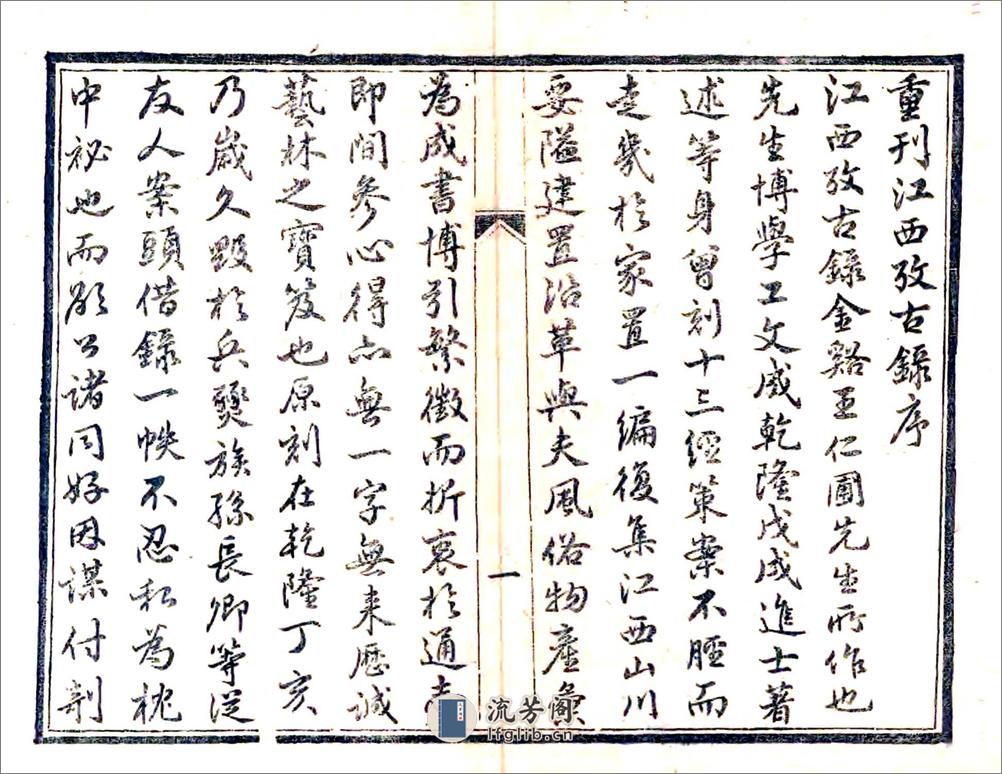 重刊江西攷古錄序
江西攷古錄金谿王仁圃先生所作也
先生博學工文成乾隆戊戌進士著
述等身曾刻十三經策案不脛而
走幾於家置一編復集江西山川
要隘建置沿革與夫風俗物產彙
一
為成書博引繁徵而折衷於通志
即間參心得亦無一字無来歷誠
藝林之寶笈也原刻在乾隆丁亥
乃嵗久毀於兵燹族孫長卿等从
友人案頭借錄一帙不忍私為枕
中祕也而願公諸同好因謀付剞
流芳阁
lfglib.cn